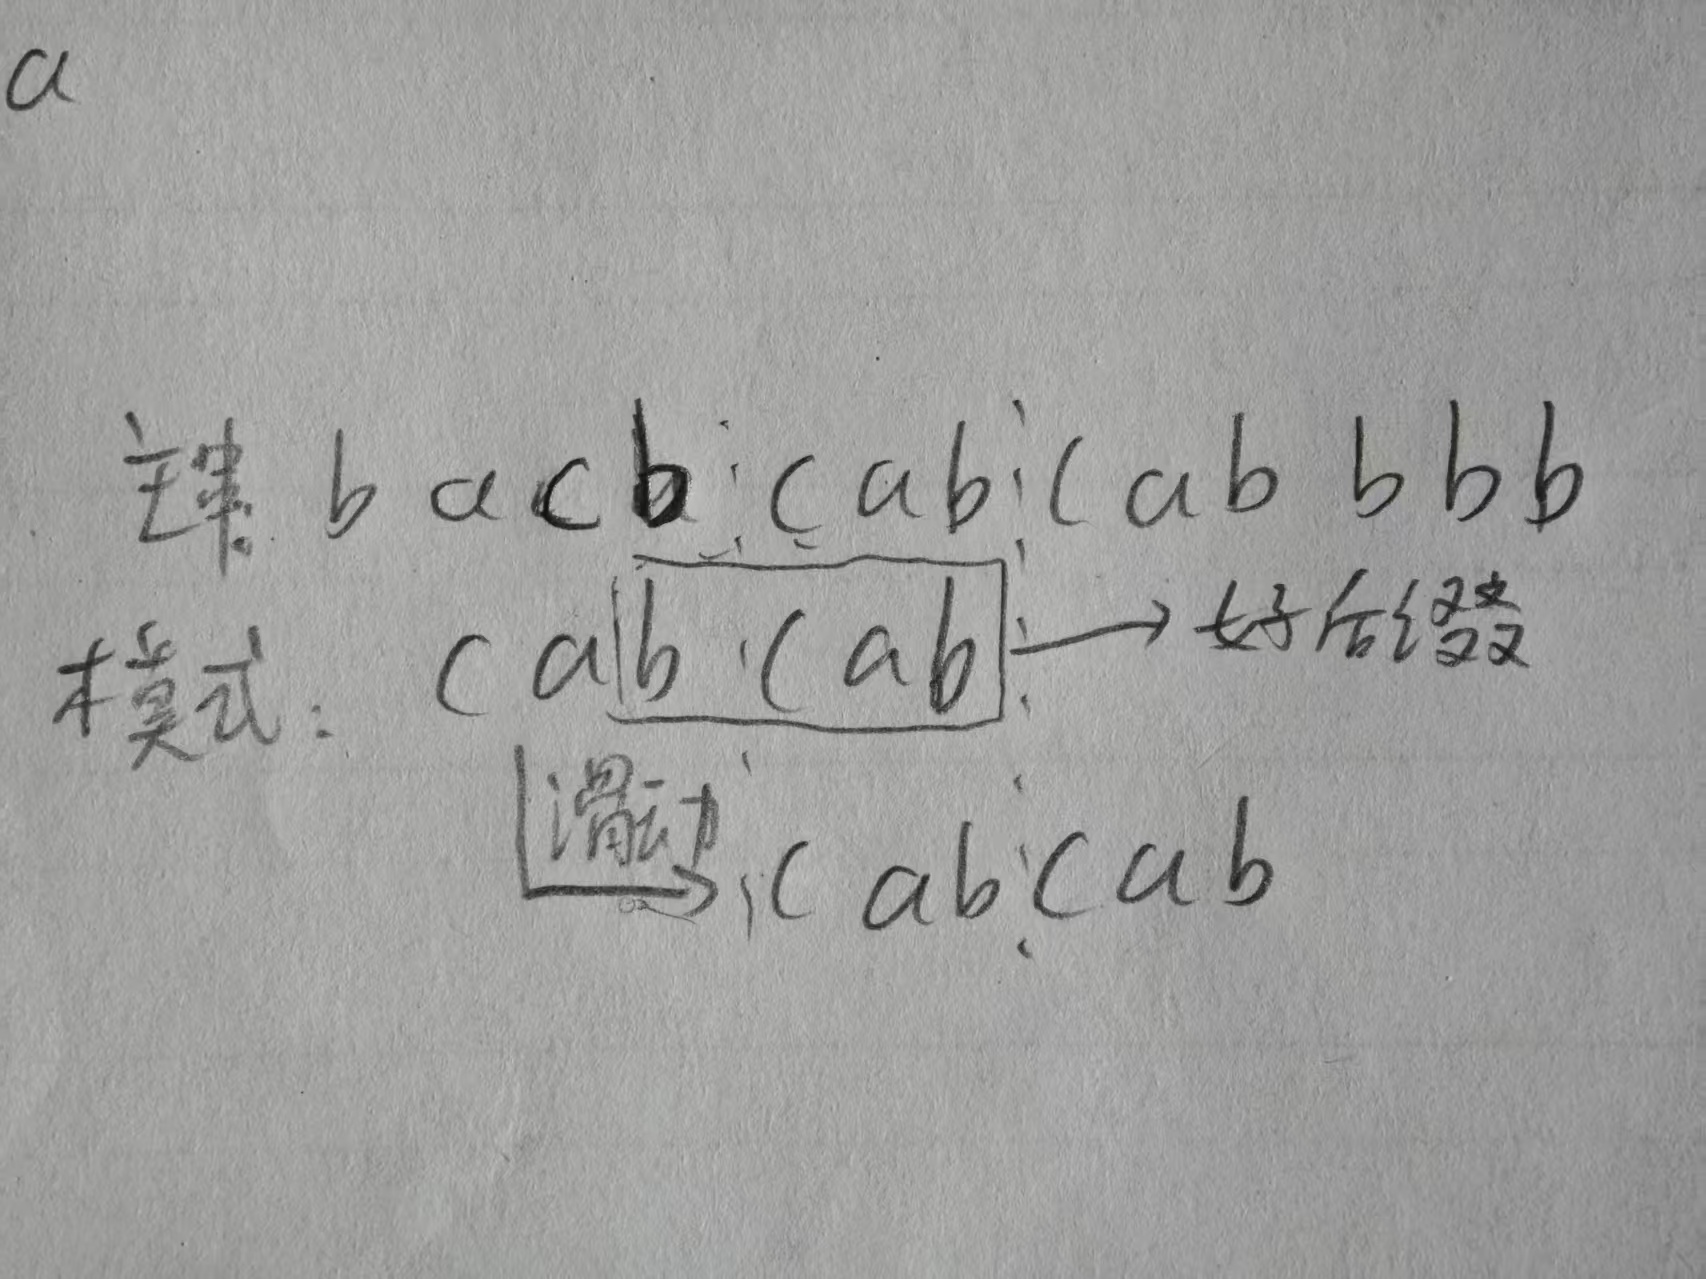 a
主串: b a c b c a b c a b b b b
模式: c a b c a b → 好后缀
滑动 c a b c a b